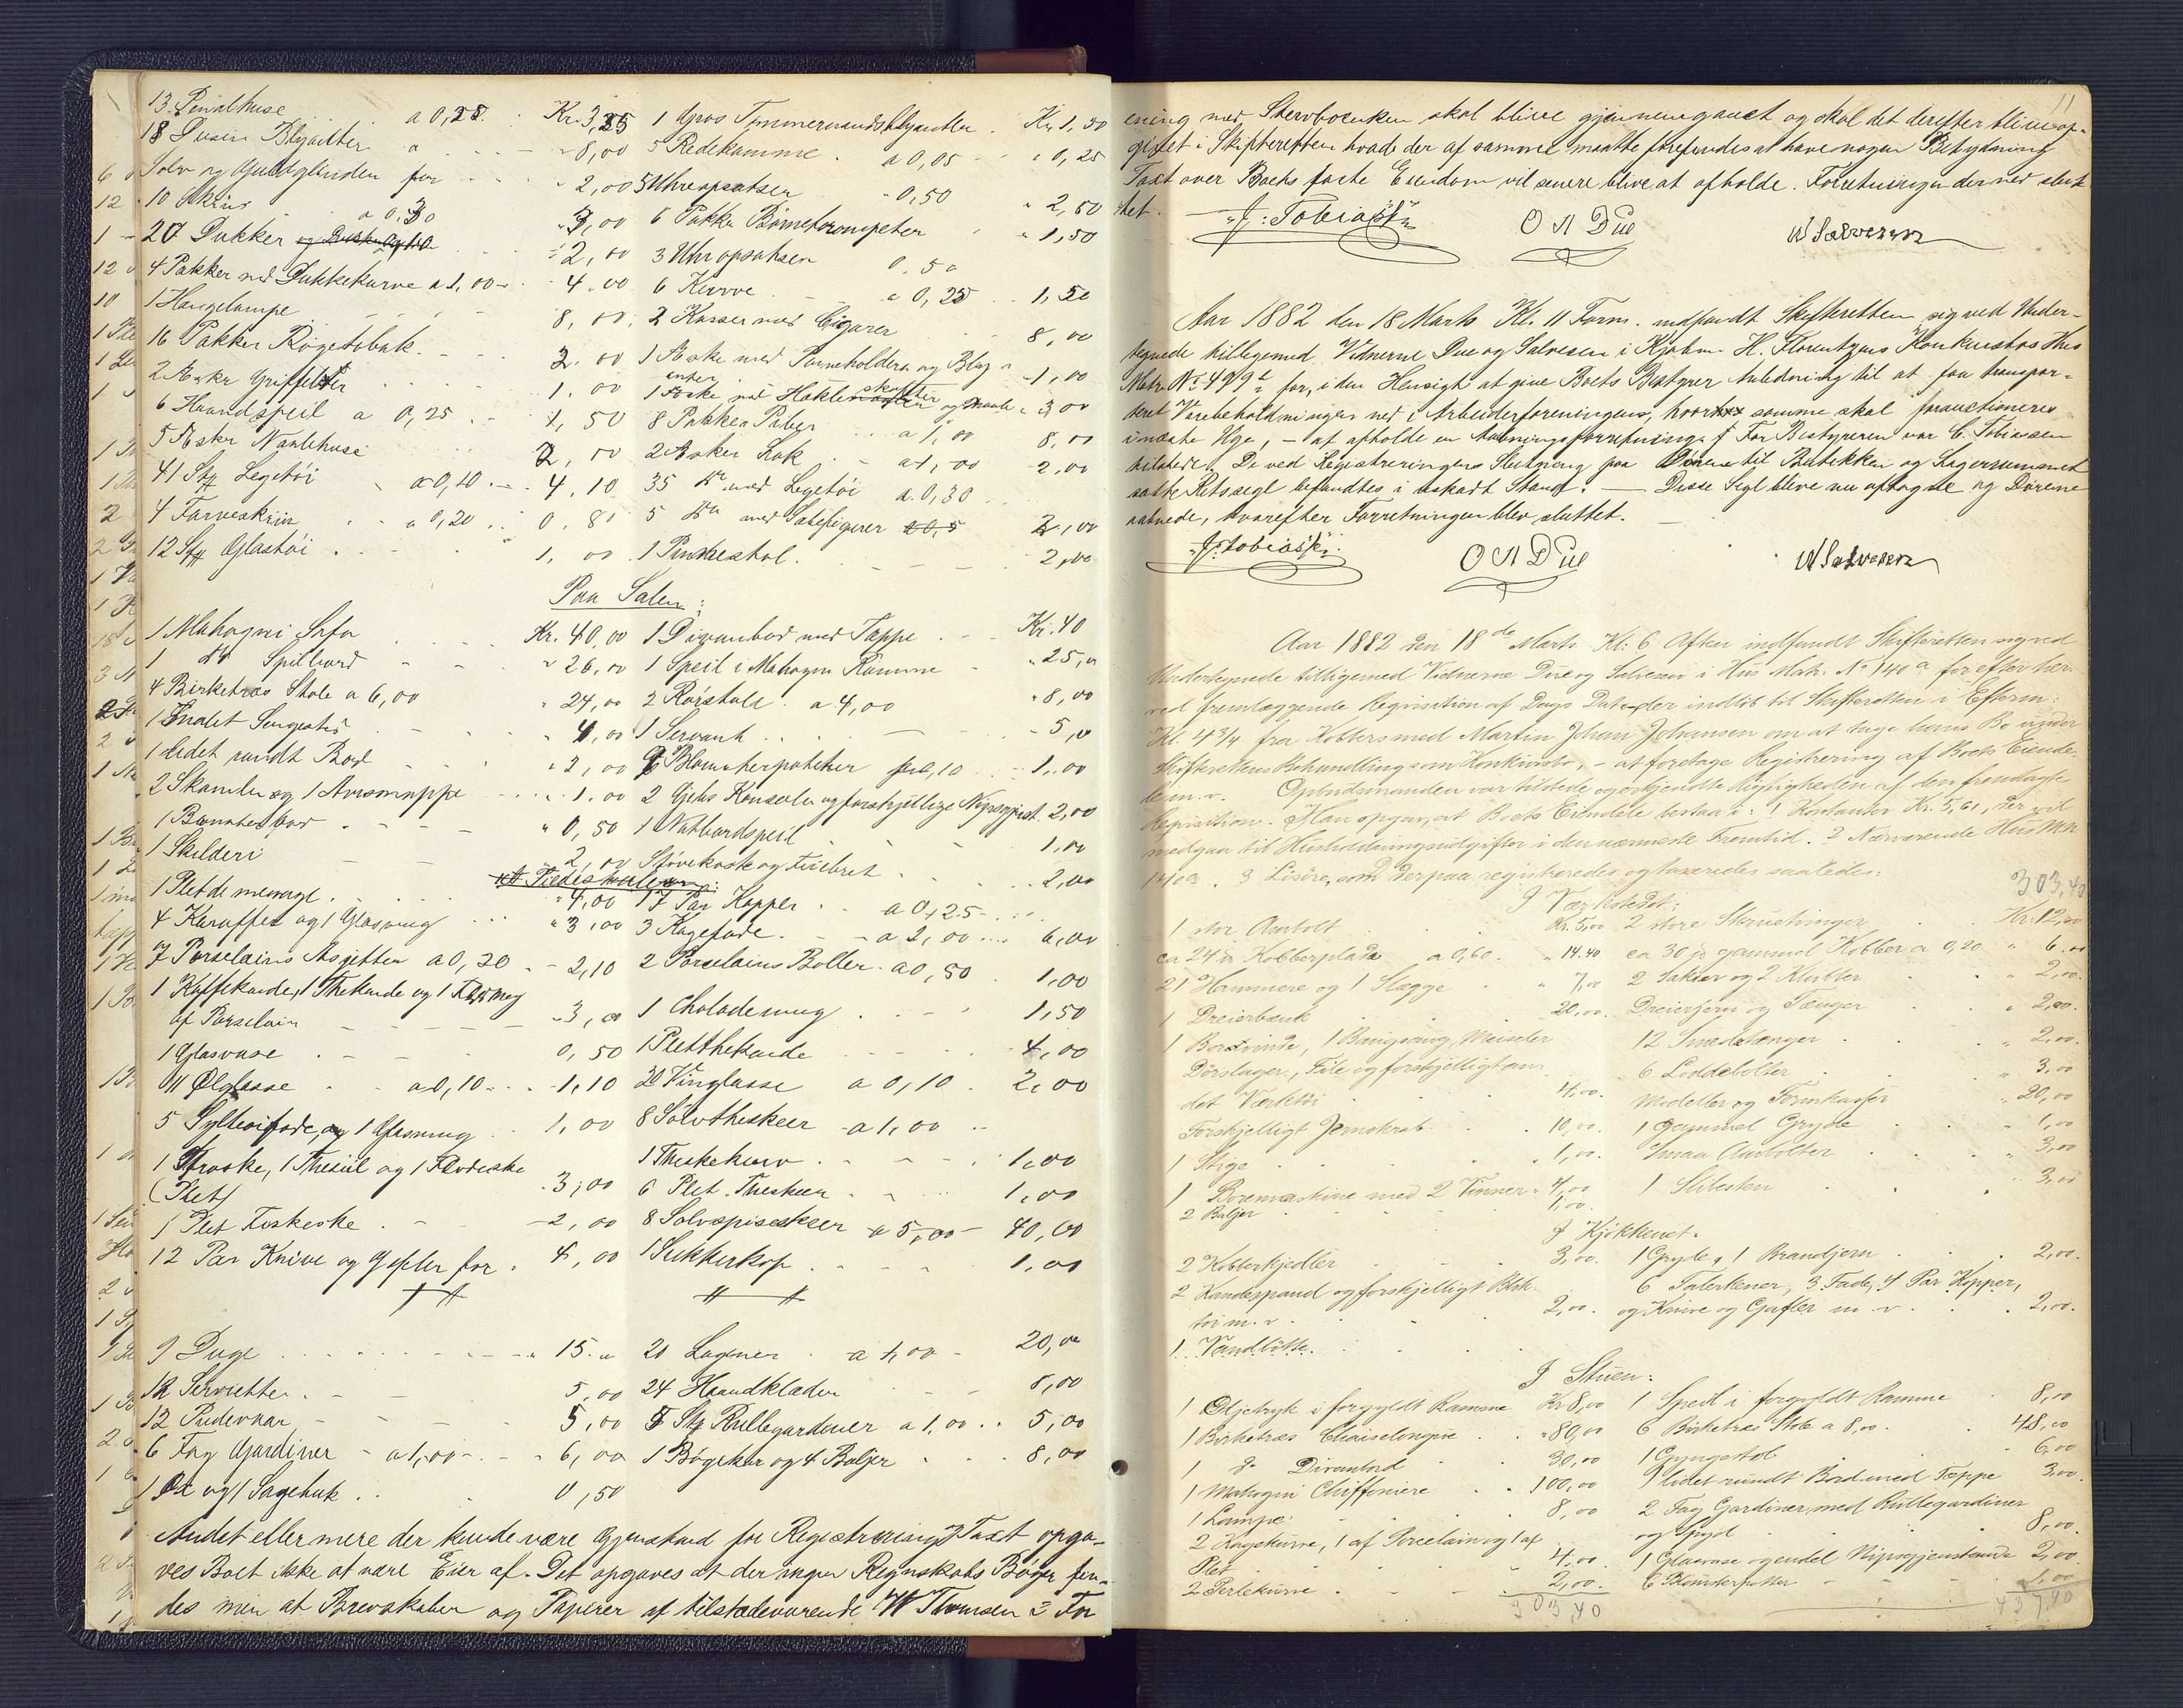 13 Penalhuse a 0,25. Kr. 3,25
18 Dusin Blyanter a 8,00
Sølv og Guldglinden for 2,00
10 Skrin a 0,30 3,00
20 Dukker 2,00
4 Pakker med Dukkekurve a 1,00 4.00
1 Hangelampe 8,00
16 Pakker Røgetobak 2.00
2 Æsker Griffler 1.00
6 Haandspeil a 0,25 1,50
5 Æsker Naalehuse 2,00
41 Stk Legetøi a 0,10 4.10
4 Farveskrin a 0,20 0.80
12 Stk Glastøi 1,00
1 Gros Tømmermandsblyanter Kr. 1,50
5 Redekamme a 0,05 0,25
5 Uhropsatser 0,50 2,50
6 Pakker Børnetrompeter 1,50
3 Uhropsatser 0,50
6 Kurve a 0,25 1,50
2 Kasser med Cigarer 8,00
1 Æske med Penneholdere og Blyanter 1,00
1 Æske med Hækleskafter og Naale 3,00
8 Pakker Piber a 1,00 8,00
2 Æsker Lak a 1,00 2,00
35 do med Legetøi a 0,30
5 do med 2,00
1 2,00
Paa Salen:
1 Mahogni Sofa Kr. 40,00
1 do Spilbord 26,00
4 Birketræs Stole a 6,00 24,00
1 malet Sengested 4,00
1 lidet rundt Bord 2,00
2 Skamler og 1 Avismappe 1.00
1 Bord 0,50
1 Skilderi 2,00
1 Pletde menage 4,00
4 Karafler og 1 Glasmug 3,00
7 Porselains Asjetter a 0,30 2,10
1 Kaffekande, 1 Thekande og 1 Flødemug
af Porselain 3,00
1 Glasvase 0,50
11 Ølglasse a 0,10 1,10
5 Syltetøifade, og 1 Glasmug 1,00
1 Strøske, 1 Thesiil og 1 Flødeske
(Plet) 3,00
1 Plet Fiskeske 2,00
12 Par Knive og Gafler for 4,00
1 Divanbord med Tæppe Kr. 40
1 Speil i Mahogni Ramme 25,00
2 Rørstole a 4,00 8,00
1 Servant 5,00
Blomsterpotter for 0,10 1.00
2 Gibs Konsoler og forskjellige Nipsgjenst. 2,00
1 Natbordspeil 1,00
Støvekost og Firebret 2,00
17 Par Kopper a 0,25
3 Kagefade a 2,00 6,00
2 Porselains Boller a 0,50 1,00
1 Choladenmug 1,50
1 Pletthekande 4,00
20 Vinglasse a 0,10 2,00
8 Sølvtheskeer a 1,00
1 Theskekurv 1,00
6 Plet Theskeer 1,00
8 Sølvspiseskeer a 5,00 40,00
1 Sukkerkop 1,00
9 Duge 15.00
12 Servietter 5,00
12 Pudevaar 5,00
6 Fag Gardiner a 1,00 6,00
1 Øx og 1 Sagehuk 0,50
20 Lagener a 1,00 20,00
24 Haandklæder 8,00
5 Stk Rullegardiner a 1,00 5,00
1 Bøgekar og 4 Baljer 8,00
Andet eller mere der kunde være Gjenstand for Registrering & Taxt opga-
ves Boet ikke at være Eier af. Det opgaves at der ingen Regnskabs Bøger fin-
des men at Brevskaber og Papirer af tilstedeværende W Thomsen i For
11
ening med Skevbøenken skal blive gjennemgaaet og skal det derefter blive op-
givet i Skifteretten hvad der af samme maatte forefindes at have nogen Betydning
Taxt over Boets faste Eiendom vil senere blive at afholde. Forretningen dermed slut-
tet.
J. Tobiassen O A Due W Salvesen
Aar 1882 den 18 Marts Kl. 11 Form. indfandt Skifteretten sig ved Under-
tegnede tilligemed Vidnerne Due og Salvesen i Kjøbm. H. Florentzens Konkursbos Hus
Matr. No 499 for, i den Hensigt at give Boets Bestyrer Anledning til at faa transpor-
teret Varebeholdningen ned i Arbeiderforeningens, hvor samme skal forauctioneres
i næste Uge, – at afholde en Aabningsforretning. For Bestyreren var C. Tobiassen
tilstede. De ved Registreringens Slutning paa Dørene til Butikken og Lagerrummet
satte Retssegl befandtes i uskadt Stand. — Disse Segl bleve nu aftagne og Dørene
aabnede, hvorefter Forretningen blev sluttet.
J. Tobiassen O A Due W Salvesen
Aar 1882 den 18de Marts Kl. 6 Aften indfandt Skifteretten sig ved
Undertegnede tilligemed Vidnerne Due og Salvesen i Hus Matr. No 140 a for efter her-
ved fremlæggende Reqvisition af Dags Dato der indløb til Skifteretten i Efterm.
Kl. 4 3/4 fra Kobbersmed Martin Johan Johansen om at tage hans Bo under
Skifterettens Behandling som Konkursbo, – at foretage Registrering af Boets Eiende-
le m. v. Opbudsmanden var tilstede og erkjendte Rigtigheden af den fremlagte
Reqvisition. Han opgav, at Boets Eiendele bestaa i: 1 Kontanter Kr. 5,61, der vil
medgaa til Husholdningsudgifter i den nærmeste Fremtid. 2 Nærværende Hus Mtr
140a. 3 Løsøre, som derpaa registreredes og taxeredes saaledes:
303,40
I Værkstedet:
1 stor Ambolt Kr. 5,00
ca 24 Kobberplade a 0,60. 14.40
21 Hammere og 1 Slægge 7,00
1 Dreierbænk 20,00
1 Borevinde, 1 Baugsaug, Meisler
Dørslager, File og forskjelligt an-
det Værktøi 4,00
Forskjelligt Jernskrab 10,00
1 Stige 1,00
1 Boremaskine med 2 Vinner 4,00
2 Baljer 1,00
2 store Skruetvinger Kr. 12,00
ca 30 gammel Kobber a 0,20 6.00
2 Sakser og 2 Klutter 2,00
Dreierjern og Tænger 2,00
12 Smedetænger 2,00
6 Loddebolter 3,00
Modeller og Formkasser 20,00
1 gammel Gryde 1,00
Smaa Ambolter 3,00
1 Slibesten 3,00
I Kjøkkenet.
2 Kobberkjedler 3,00
2 Vandespand og forskjelligt Blik-
tøi m. v. 2,00
1 Vandbøtte
1 Gryde, 1 Brandjern 2,00
6 Talerkener, 3 Fade, 4 Par Kopper,
og Knive og Gafler m. v. 2,00
I Stuen:
1 Oljetryk i forgyldt Ramme Kr 8,00
1 Birketræs Chaiselongue 80,00
1 do Divanbord 30,00
1 Mahogni Chiffoniere 100,00
1 Lampe 8,00
2 Kagekurve, 1 af Porcelain og 1 af
Plet 4,00
2 Perlekurve 2,00
303,40
1 Speil i forgyldt Ramme 8,00
6 Birketræs Stole a 8,00 48,00
1 Gyngestol 6,00
1 lidet rundt Bord med Tæppe 3,00
2 Fag Gardiner med Rullegardiner
og Spyd 8,00
1 Glasvase og endel Nipsgjenstande 2,00
6 Blomsterpotter 1,00
437,40